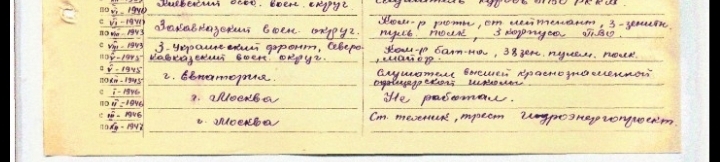 Киевский особ. воен. округ.
по VI-1941
с VI-1941 Закавказский воен. округ. Ком-р роты, ст. лейтенант, 3-зенитн.
по VIII-1943 пуль. полк, 3 корпуса ПВО.
с VIII-1943 3-Украинский фронт, Северо- Ком-р бат-на, 38 зен. пулем. полк,
по V-1945 кавказский воен. округ. майор.
с V-1945 г. Евпатория. слушатель высшей краснознаменной
по XII-1945 офицерской школы.
с I-1946 г. Москва Не работал.
по II-1946
с III-1946 г. Москва Ст. техник, трест Гидроэнергопроект.
по XII-1947